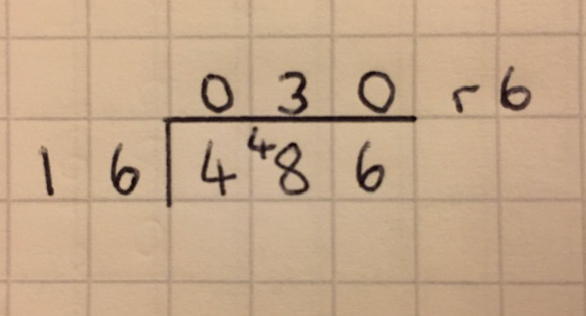 0 3 0 r 6
1 6 4 ⁴8 6